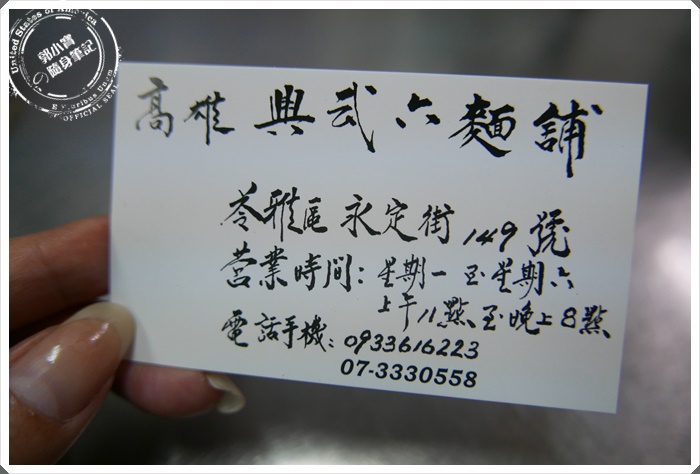 United States of America
郭小寶
の隨身筆記
E Pluribus Unum
OFFICIAL SEAL
高雄 興弍六麵舖
苓雅區永定街149號
營業時間：星期一至星期六
上午11點至晚上8點
電話手機：0933616223
07-3330558